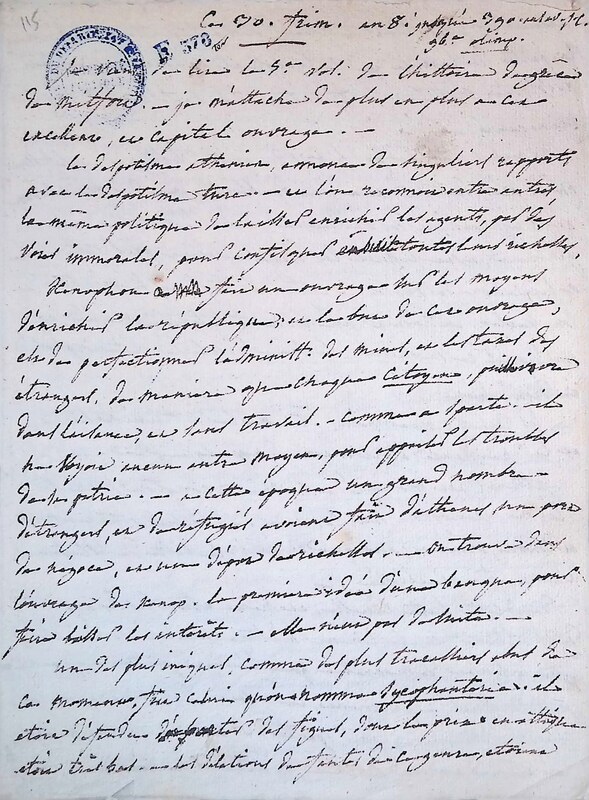 115
Ce 30. frim. an 8.
96e olimp.
E 376 bis
je v de lire le 5e vol. de l'histoire de grèce
de Mitford. — je m'attache de plus en plus a cet
excellent, et capital ouvrage. —
le despotisme athénien, annonce de singuliers rapports
avec le despotisme turc. — et l'on reconnoit entre autres,
la même politique de laisser enrichir les agents, par des
voies immorales, pour confisquer toutes leurs richesses.
Xenophon fait un ouvrage sur les moyens
d'enrichir la république; et le but de cet ouvrage,
est de perfectionner l'administ. des mines, et les taxes des
étrangers, de maniere que chaque citoyen, puisse vivre
dans l'aisance, et sans travail. — comme a sparte. — il
ne voyoit aucun autre moyen, pour appaiser les troubles
de sa patrie. — a cette époque un grand nombre
d'étrangers, et de réfugiés avoient fait d'athenes un port
de négoce, et un dépot de richesses. — On trouve dans
l'ouvrage de Xenop. la premiere idée d'une banque, pour
faire baisser les intérêts. — elle n'eut pas de suite. —
un des plus iniques, comme des plus tracassiers abus de
ce moment, fut celui qu'on nomma Sycophanterie. il
étoit défendu des figues, dont le prix en attique
étoit très bas. — les délations de fautes de ce genre, étoient